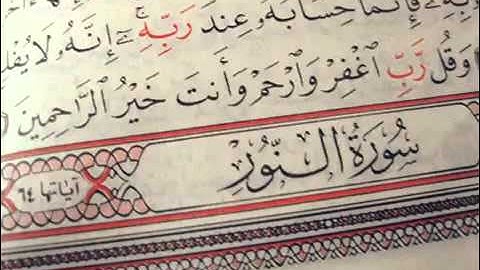 بِهِۦ فَإِنَّمَا حِسَابُهُۥ عِندَ رَبِّهِۦٓ ۚ إِنَّهُۥ لَا يُفْلِ
وَقُل رَّبِّ ٱغْفِرْ وَٱرْحَمْ وَأَنتَ خَيْرُ ٱلرَّٰحِمِينَ
سُورَةُ النُّورِ
آياتها ٦٤